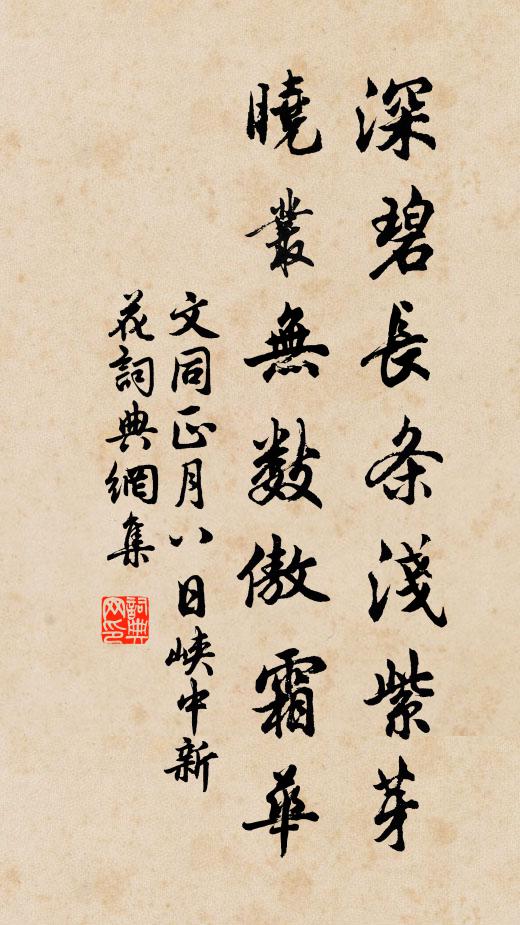 深碧長条淺紫芽
曉叢無數傲霜華
文同正月八日峽中新
花詞典網集
詞典网印